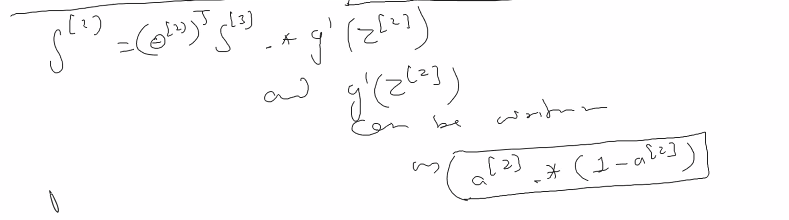 δ^[2] = (Θ^[2])^T δ^[3] .* g'(z^[2])
and g'(z^[2])
can be written
as a^[2] .* (1 - a^[2])